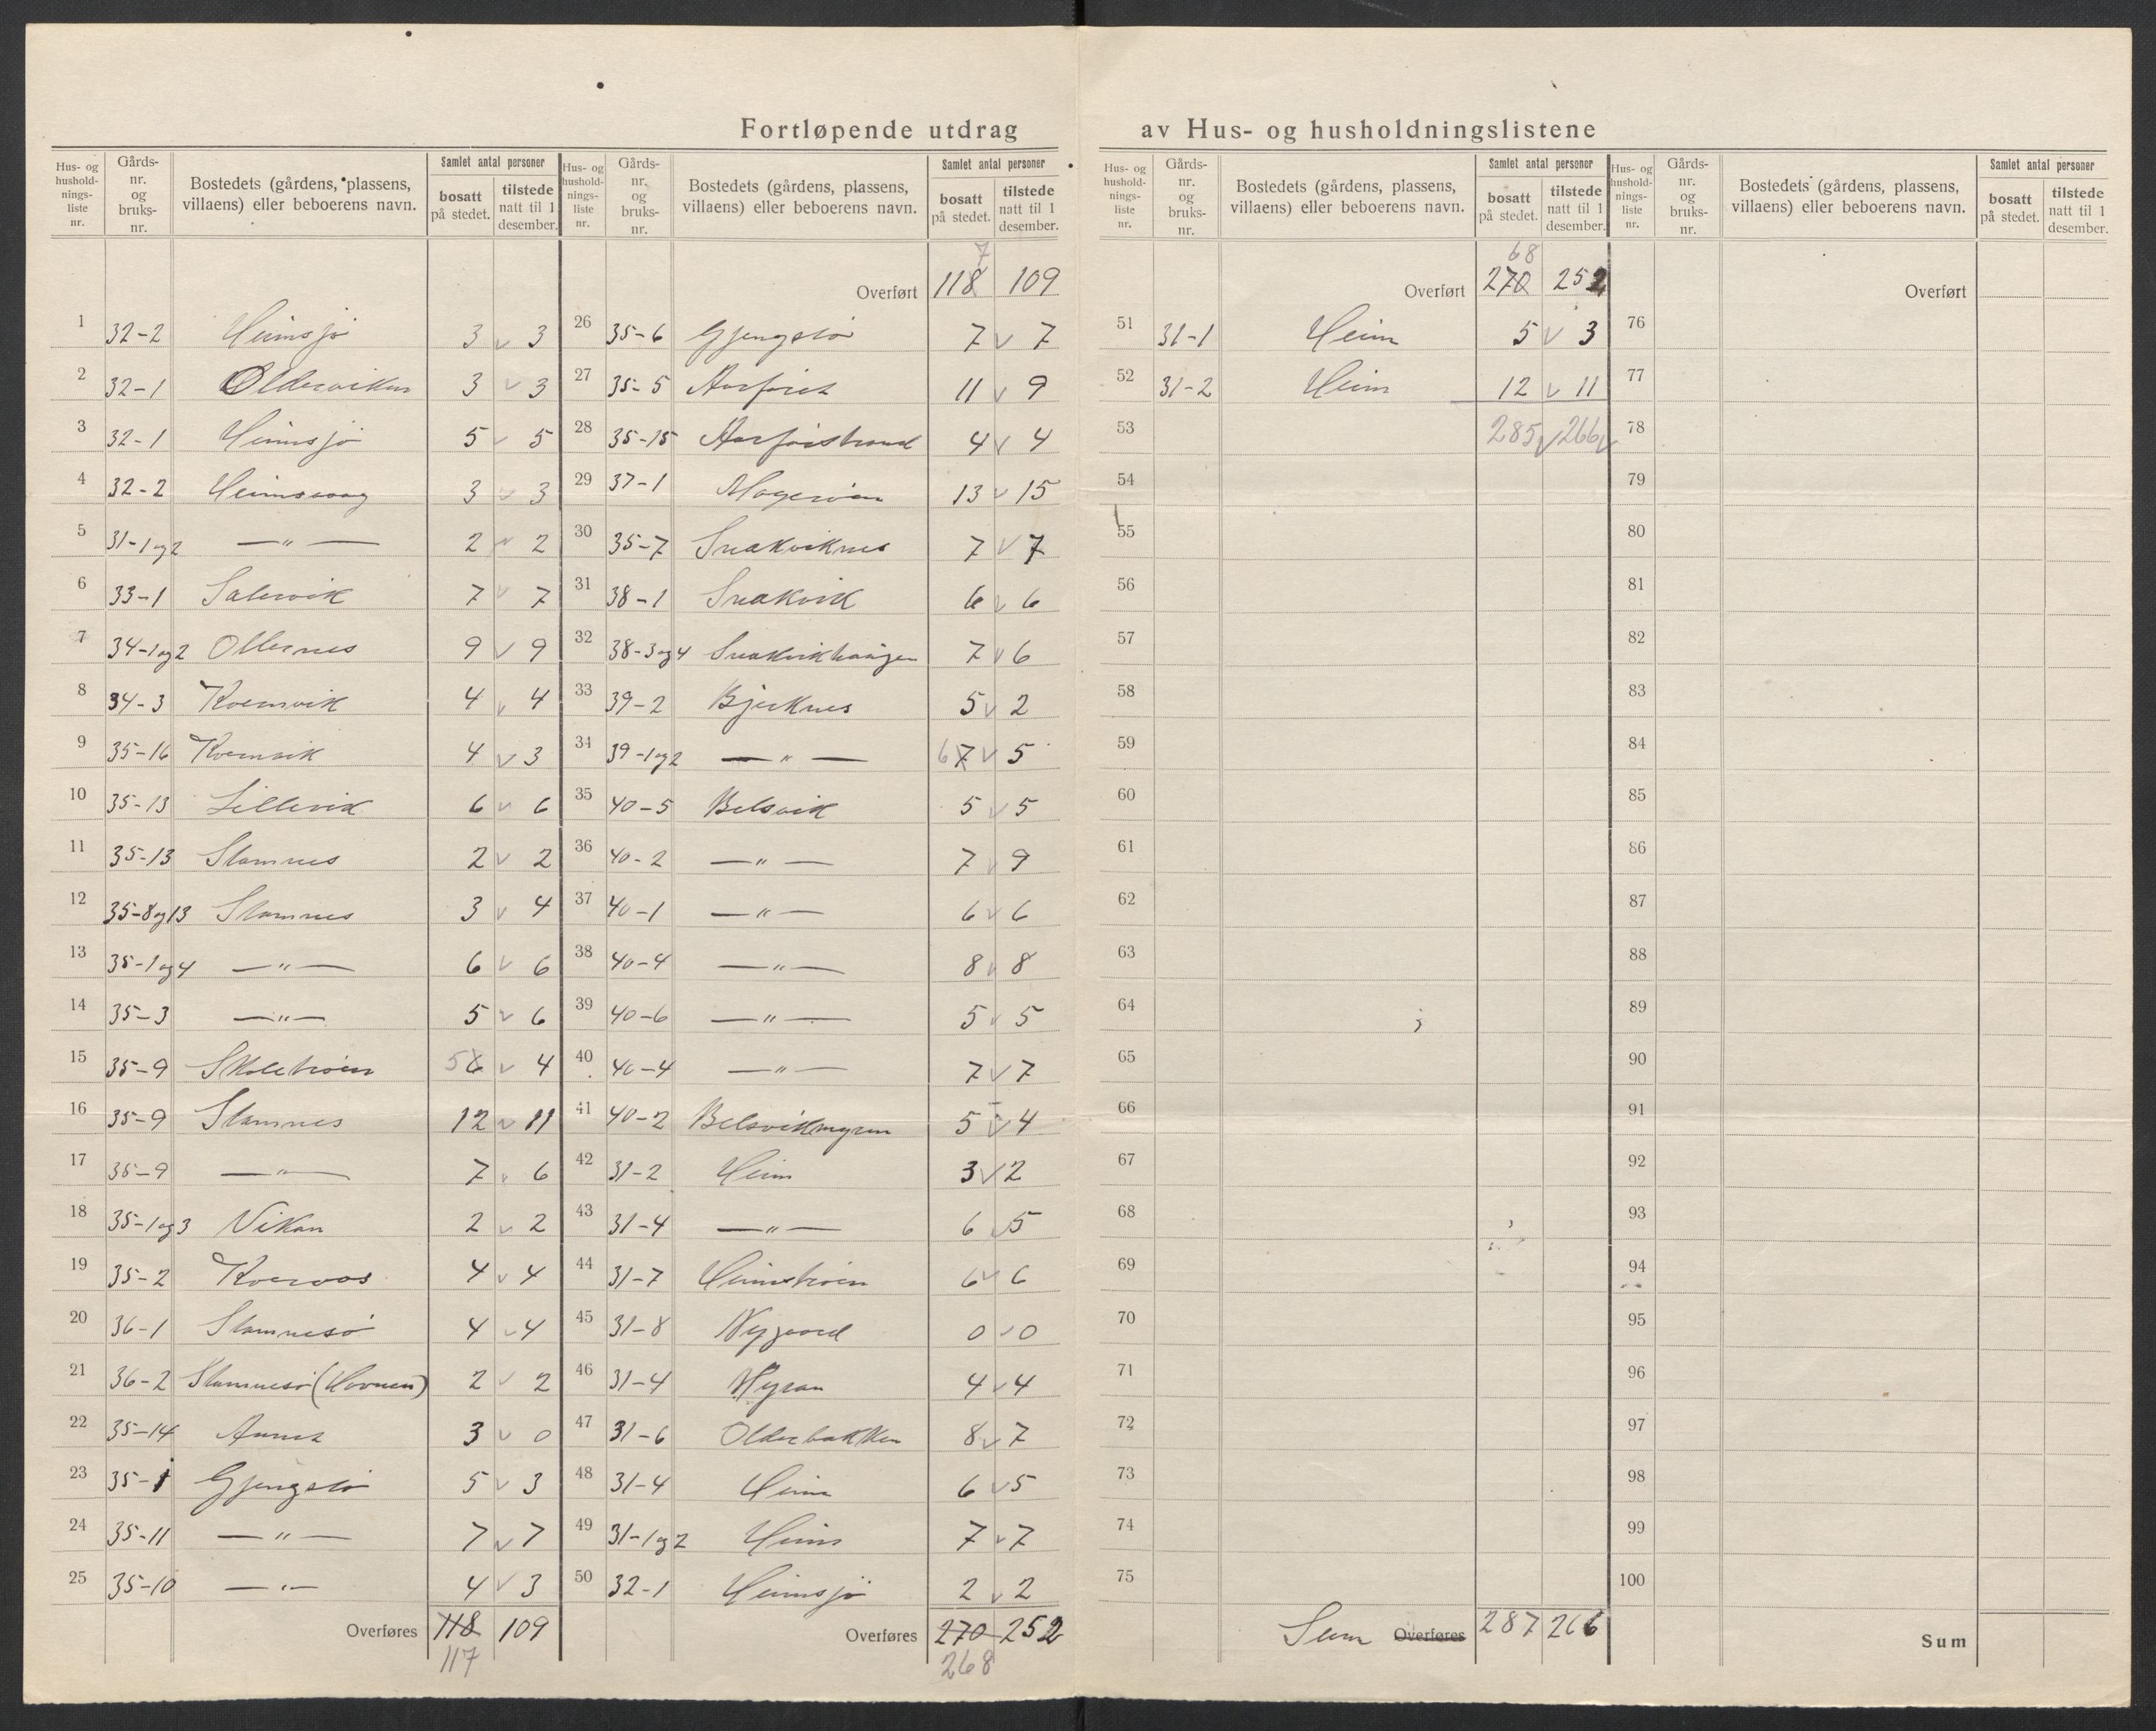 Fortløpende utdrag av Hus- og husholdningslistene
Hus- og husholdnings-liste nr. | Gårds-nr. og bruks-nr. | Bostedets (gårdens, plassens, villaens) eller beboerens navn. | Samlet antal personer | bosatt på stedet. | tilstede natt til 1 desember.
1 32-2 Heimsjø 3 v 3
2 32-1 Oldervikan 3 v 3
3 32-1 Heimsjø 5 v 5
4 32-2 Heimsvaag 3 v 3
5 31-1og2 —"— 2 v 2
6 33-1 Salervik 7 v 7
7 34-1og2 Ollernes 9 v 9
8 34-3 Kvernvik 4 v 4
9 35-16 Kvernvik 4 v 3
10 35-13 Lillevik 6 v 6
11 35-13 Stamnes 2 v 2
12 35-8og13 Stamnes 3 v 4
13 35-1og4 —"— 6 v 6
14 35-3 —"— 5 v 6
15 35-9 Skoletrøen 5 6 v 4
16 35-9 Stamnes 12 v 11
17 35-9 —"— 7 v 6
18 35-1og3 Vikan 2 v 2
19 35-2 Kvernaas 4 v 4
20 36-1 Stamnesø 4 v 4
21 36-2 Stamnesø (Havnen) 2 v 2
22 35-14 Aunet 3 v 0
23 35-1 Gjengstø 5 v 3
24 35-11 —"— 7 v 7
25 35-10 —"— 4 v 3
Overføres 118 109
117
Hus- og husholdnings-liste nr. | Gårds-nr. og bruks-nr. | Bostedets (gårdens, plassens, villaens) eller beboerens navn. | Samlet antal personer | bosatt på stedet. | tilstede natt til 1 desember.
7
Overført 118 109
26 35-6 Gjengstø 7 v 7
27 35-5 Aarføret 11 v 9
28 35-15 Aarførstrand 4 v 4
29 37-1 Magerøen 13 v 15
30 35-7 Snekviknes 7 v 7
31 38-1 Snekvik 6 v 6
32 38-3og4 Snekvikhaugen 7 v 6
33 39-2 Bjerknes 5 v 2
34 39-1og2 —"— 6 7 v 5
35 40-5 Belsvik 5 v 5
36 40-2 —"— 7 v 9
37 40-1 —"— 6 v 6
38 40-4 —"— 8 v 8
39 40-6 —"— 5 v 5
40 40-4 —"— 7 v 7
41 40-2 Belsvikmyren 5 v 4
42 31-2 Heim 3 v 2
43 31-4 —"— 6 v 5
44 31-7 Heimstrøen 6 v 6
45 31-8 Nygaard 0 v 0
46 31-4 Myran 4 v 4
47 31-6 Olderbakken 8 v 7
48 31-4 Heim 6 v 5
49 31-1og2 Heim 7 v 7
50 32-1 Heimsjø 2 v 2
Overføres 270 252
268
Hus- og husholdnings-liste nr. | Gårds-nr. og bruks-nr. | Bostedets (gårdens, plassens, villaens) eller beboerens navn. | Samlet antal personer | bosatt på stedet. | tilstede natt til 1 desember.
68
Overført 270 252
51 31-1 Heim 5 v 3
52 31-2 Heim 12 v 11
53 285 v 266 v
54
55
56
57
58
59
60
61
62
63
64
65
66
67
68
69
70
71
72
73
74
75
Sum Overføres 287 266
Hus- og husholdnings-liste nr. | Gårds-nr. og bruks-nr. | Bostedets (gårdens, plassens, villaens) eller beboerens navn. | Samlet antal personer | bosatt på stedet. | tilstede natt til 1 desember.
Overført
76
77
78
79
80
81
82
83
84
85
86
87
88
89
90
91
92
93
94
95
96
97
98
99
100
Sum